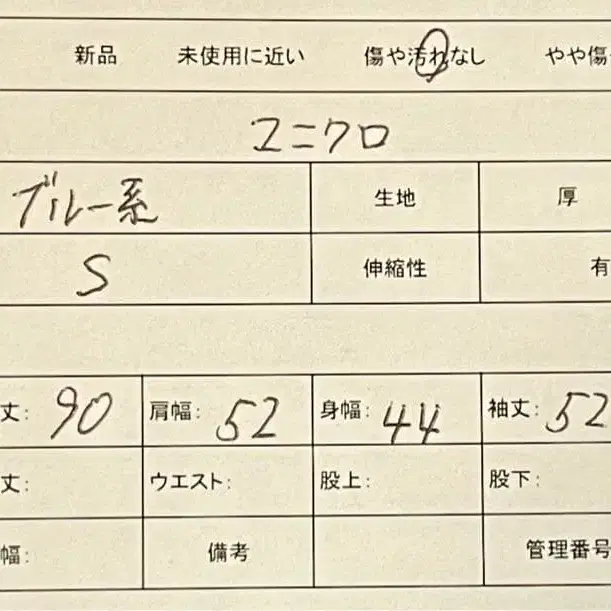 新品 未使用に近い 傷や汚れなし やや傷
ユニクロ
ブルー系 生地 厚
S 伸縮性 有
丈: 90 肩幅: 52 身幅: 44 袖丈: 52
丈: ウエスト: 股上: 股下:
幅: 備考 管理番号